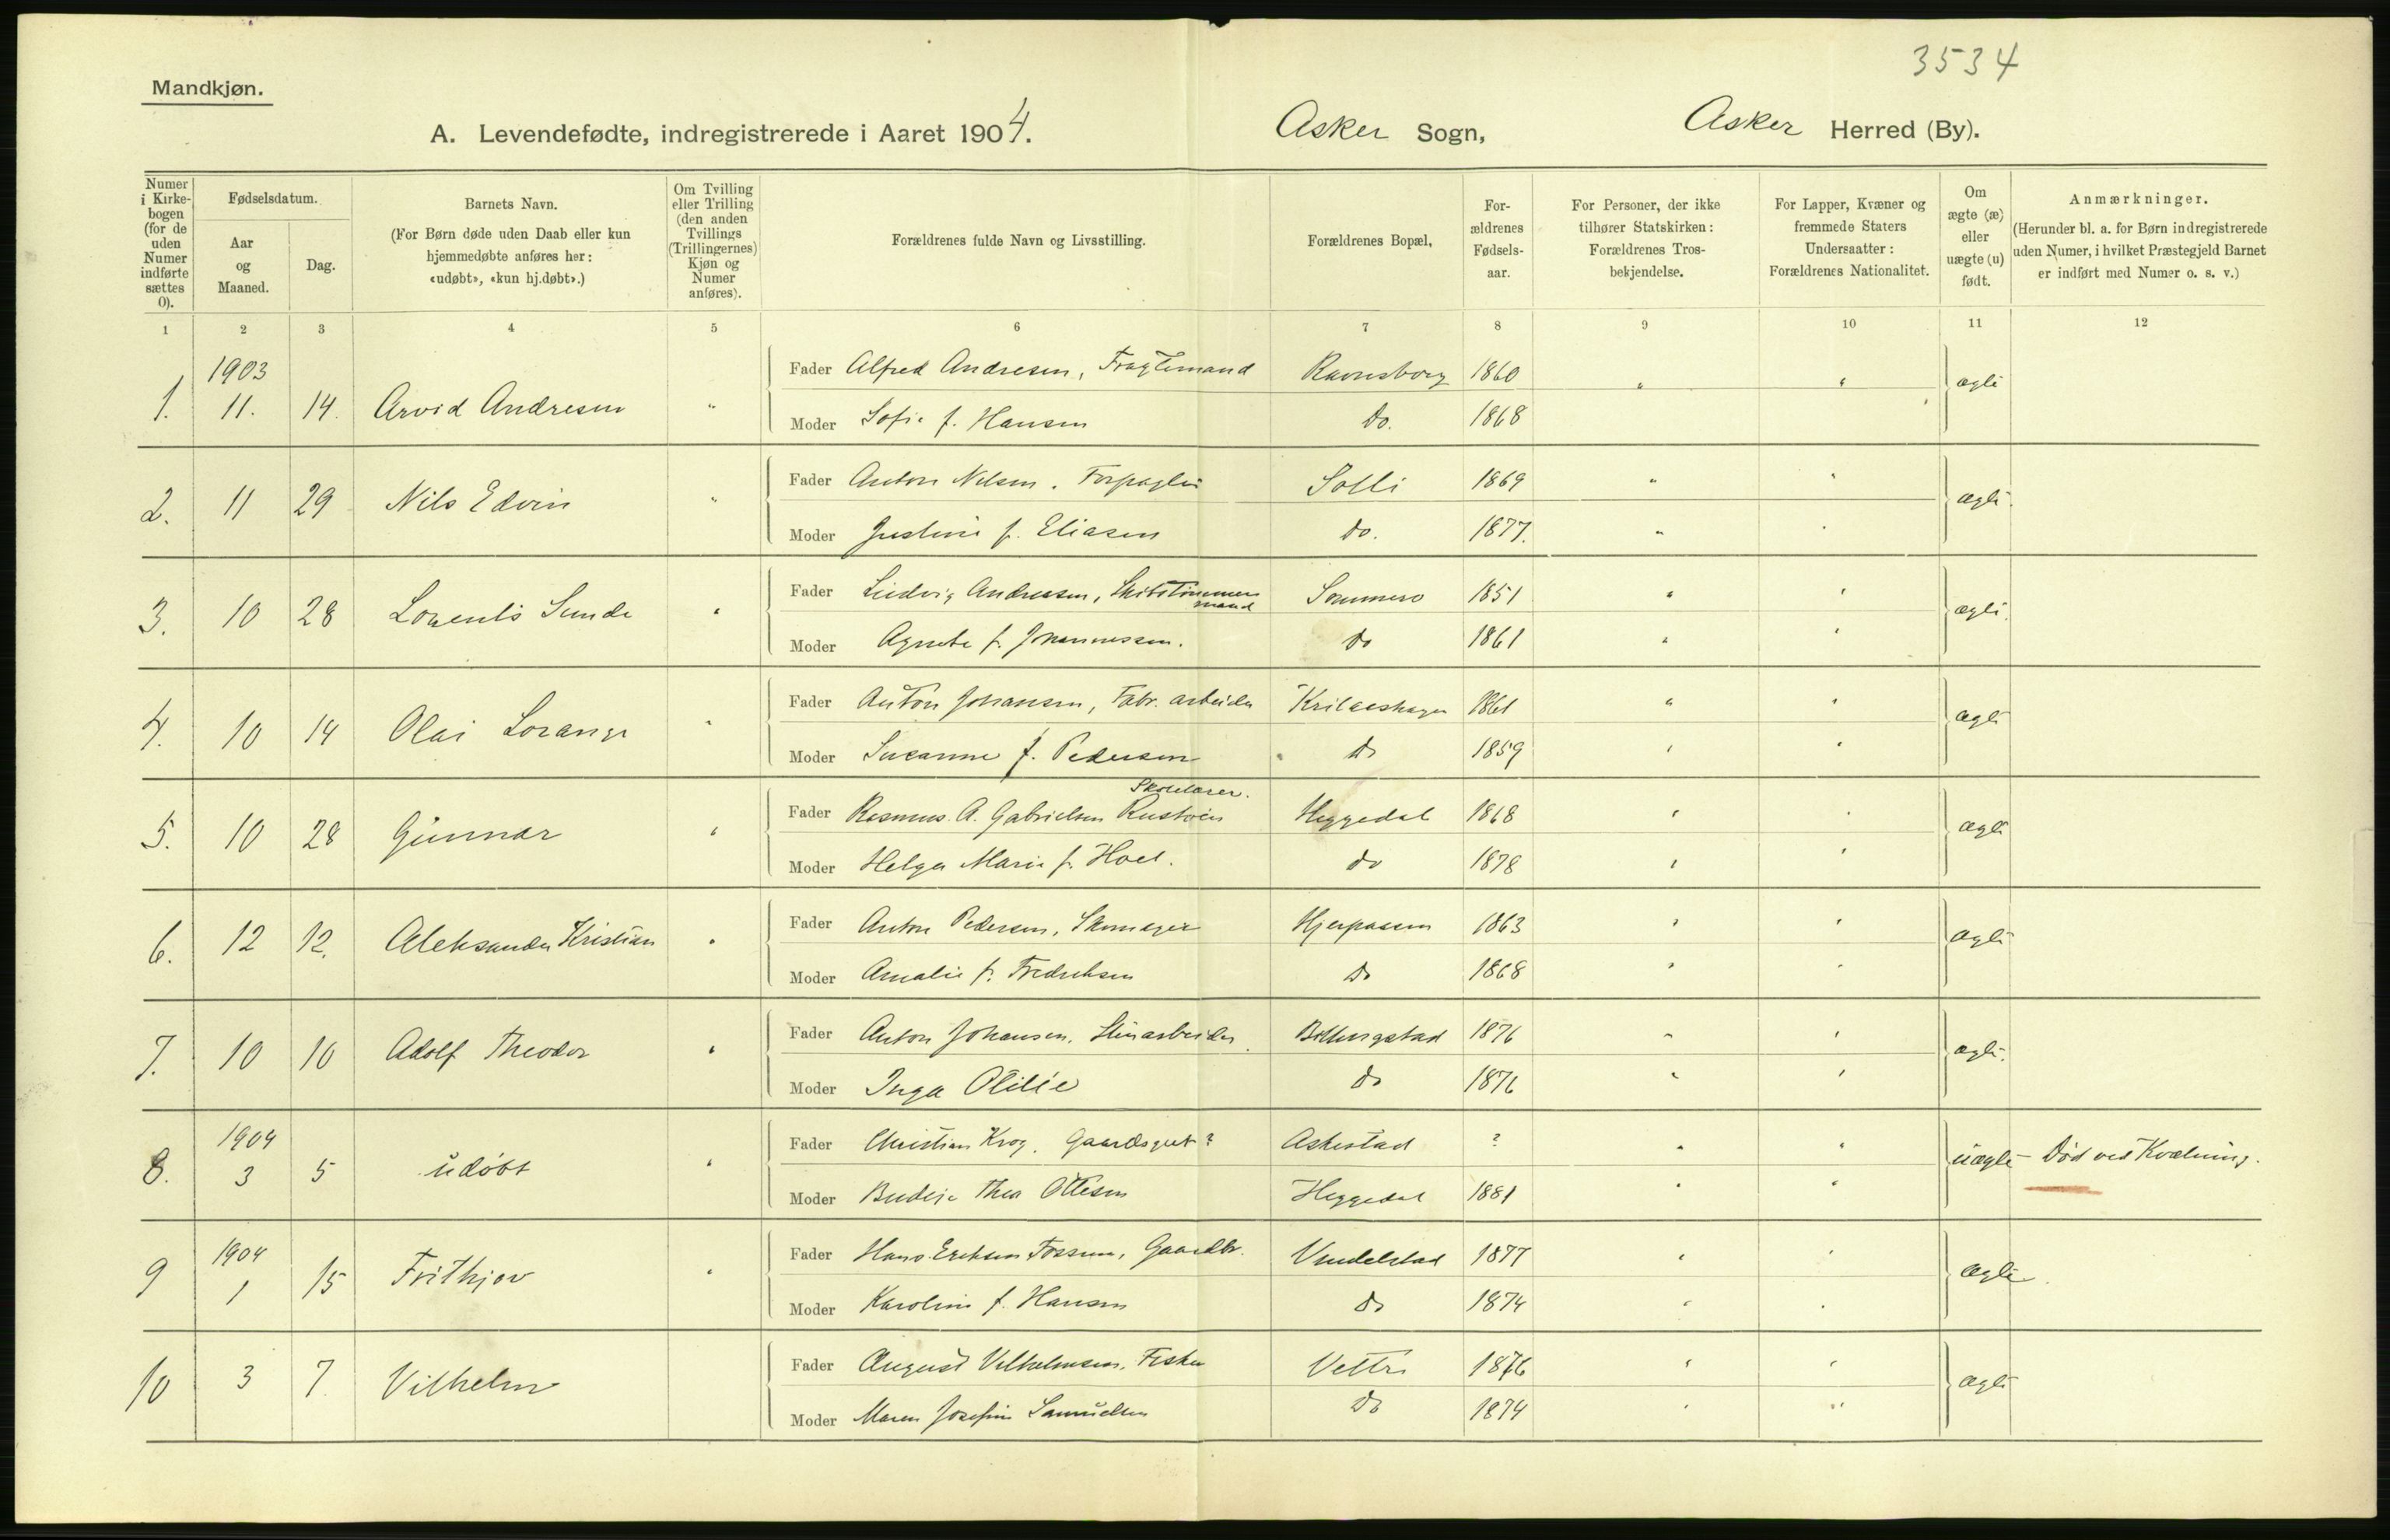 3534
Mandkjøn.
A. Levendefødte, indregistrerede i Aaret 1904. Asker Sogn, Asker Herred (By).
Numer i Kirkebogen (for de uden Numer indførte sættes 0).
Fødselsdatum.
Aar og Maaned.
Dag.
Barnets Navn.
(For Børn døde uden Daab eller kun hjemmedøbte anføres her: «udøbt», «kun hj.døbt».)
Om Tvilling eller Trilling (den anden Tvillings (Trillingernes) Kjøn og Numer anføres).
Forældrenes fulde Navn og Livsstilling.
Forældrenes Bopæl,
Forældrenes Fødselsaar.
For Personer, der ikke tilhører Statskirken: Forældrenes Trosbekjendelse.
For Lapper, Kvæner og fremmede Staters Undersaatter: Forældrenes Nationalitet.
Om ægte (æ) eller uægte (u) født.
Anmærkninger.
(Herunder bl. a. for Børn indregistrerede uden Numer, i hvilket Præstegjeld Barnet er indført med Numer o. s. v.)
1 2 3 4 5 6 7 8 9 10 11 12
1. 1903 11. 14. Arvid Andresen " Fader Alfred Andresen, Fragtemand Ravnsborg 1860 " " ægte
Moder Sofie f. Hansen Do. 1868
2. 11 29 Nils Edvin " Fader Anton Nilsen. Forpagter Solli 1869 " " ægte.
Moder Justine f. Eliasen Do. 1877. " "
3. 10 28 Lorents Sunde " Fader Ludvig Andressen, Skibstømmermand 1851 " " ægte.
Moder Agnete f. Johannessen. Do 1861 " "
4. 10 14 Olai " Fader Anton Johansen, Fabr. arbeider 1861 " " ægte
Moder Susanne f. Pedersen Do 1859 " "
5. 10 28 Gunnar " Fader Rasmus A. Gabrielsen Skolelærer. Heggedal 1868 " " ægte
Moder Helga Marie f. Hoel. do 1878 " "
6. 12 12. Aleksander Kristian " Fader Anton Pedersen, Skomager 1863 " " ægte
Moder Amalie f. Fredriksen Do 1868 " "
7. 10 10 Adolf Theodor " Fader Anton Johansen, Stenarbeider Billingstad 1876 " " ægte.
Moder Inga Otilie Do 1876 " "
8. 1904 3 5 udøbt " Fader Christian Krog. Gaardsgut? Askestad ? " " uægte Død ved Kvælning.
Moder Budeie Thea Ottesen Heggedal 1881 " "
9 1904 1 15 Frithjov " Fader Hans Eriksen Fossum, Gaardbr. 1877 " " ægte.
Moder Karoline f. Hansen Do 1874 " "
10 3 7. Vilhelm Fader August Vilhelmsen. Fisker Vettre 1876 " " ægte
Moder Maren Josefine Samuelsen Do 1874 " "